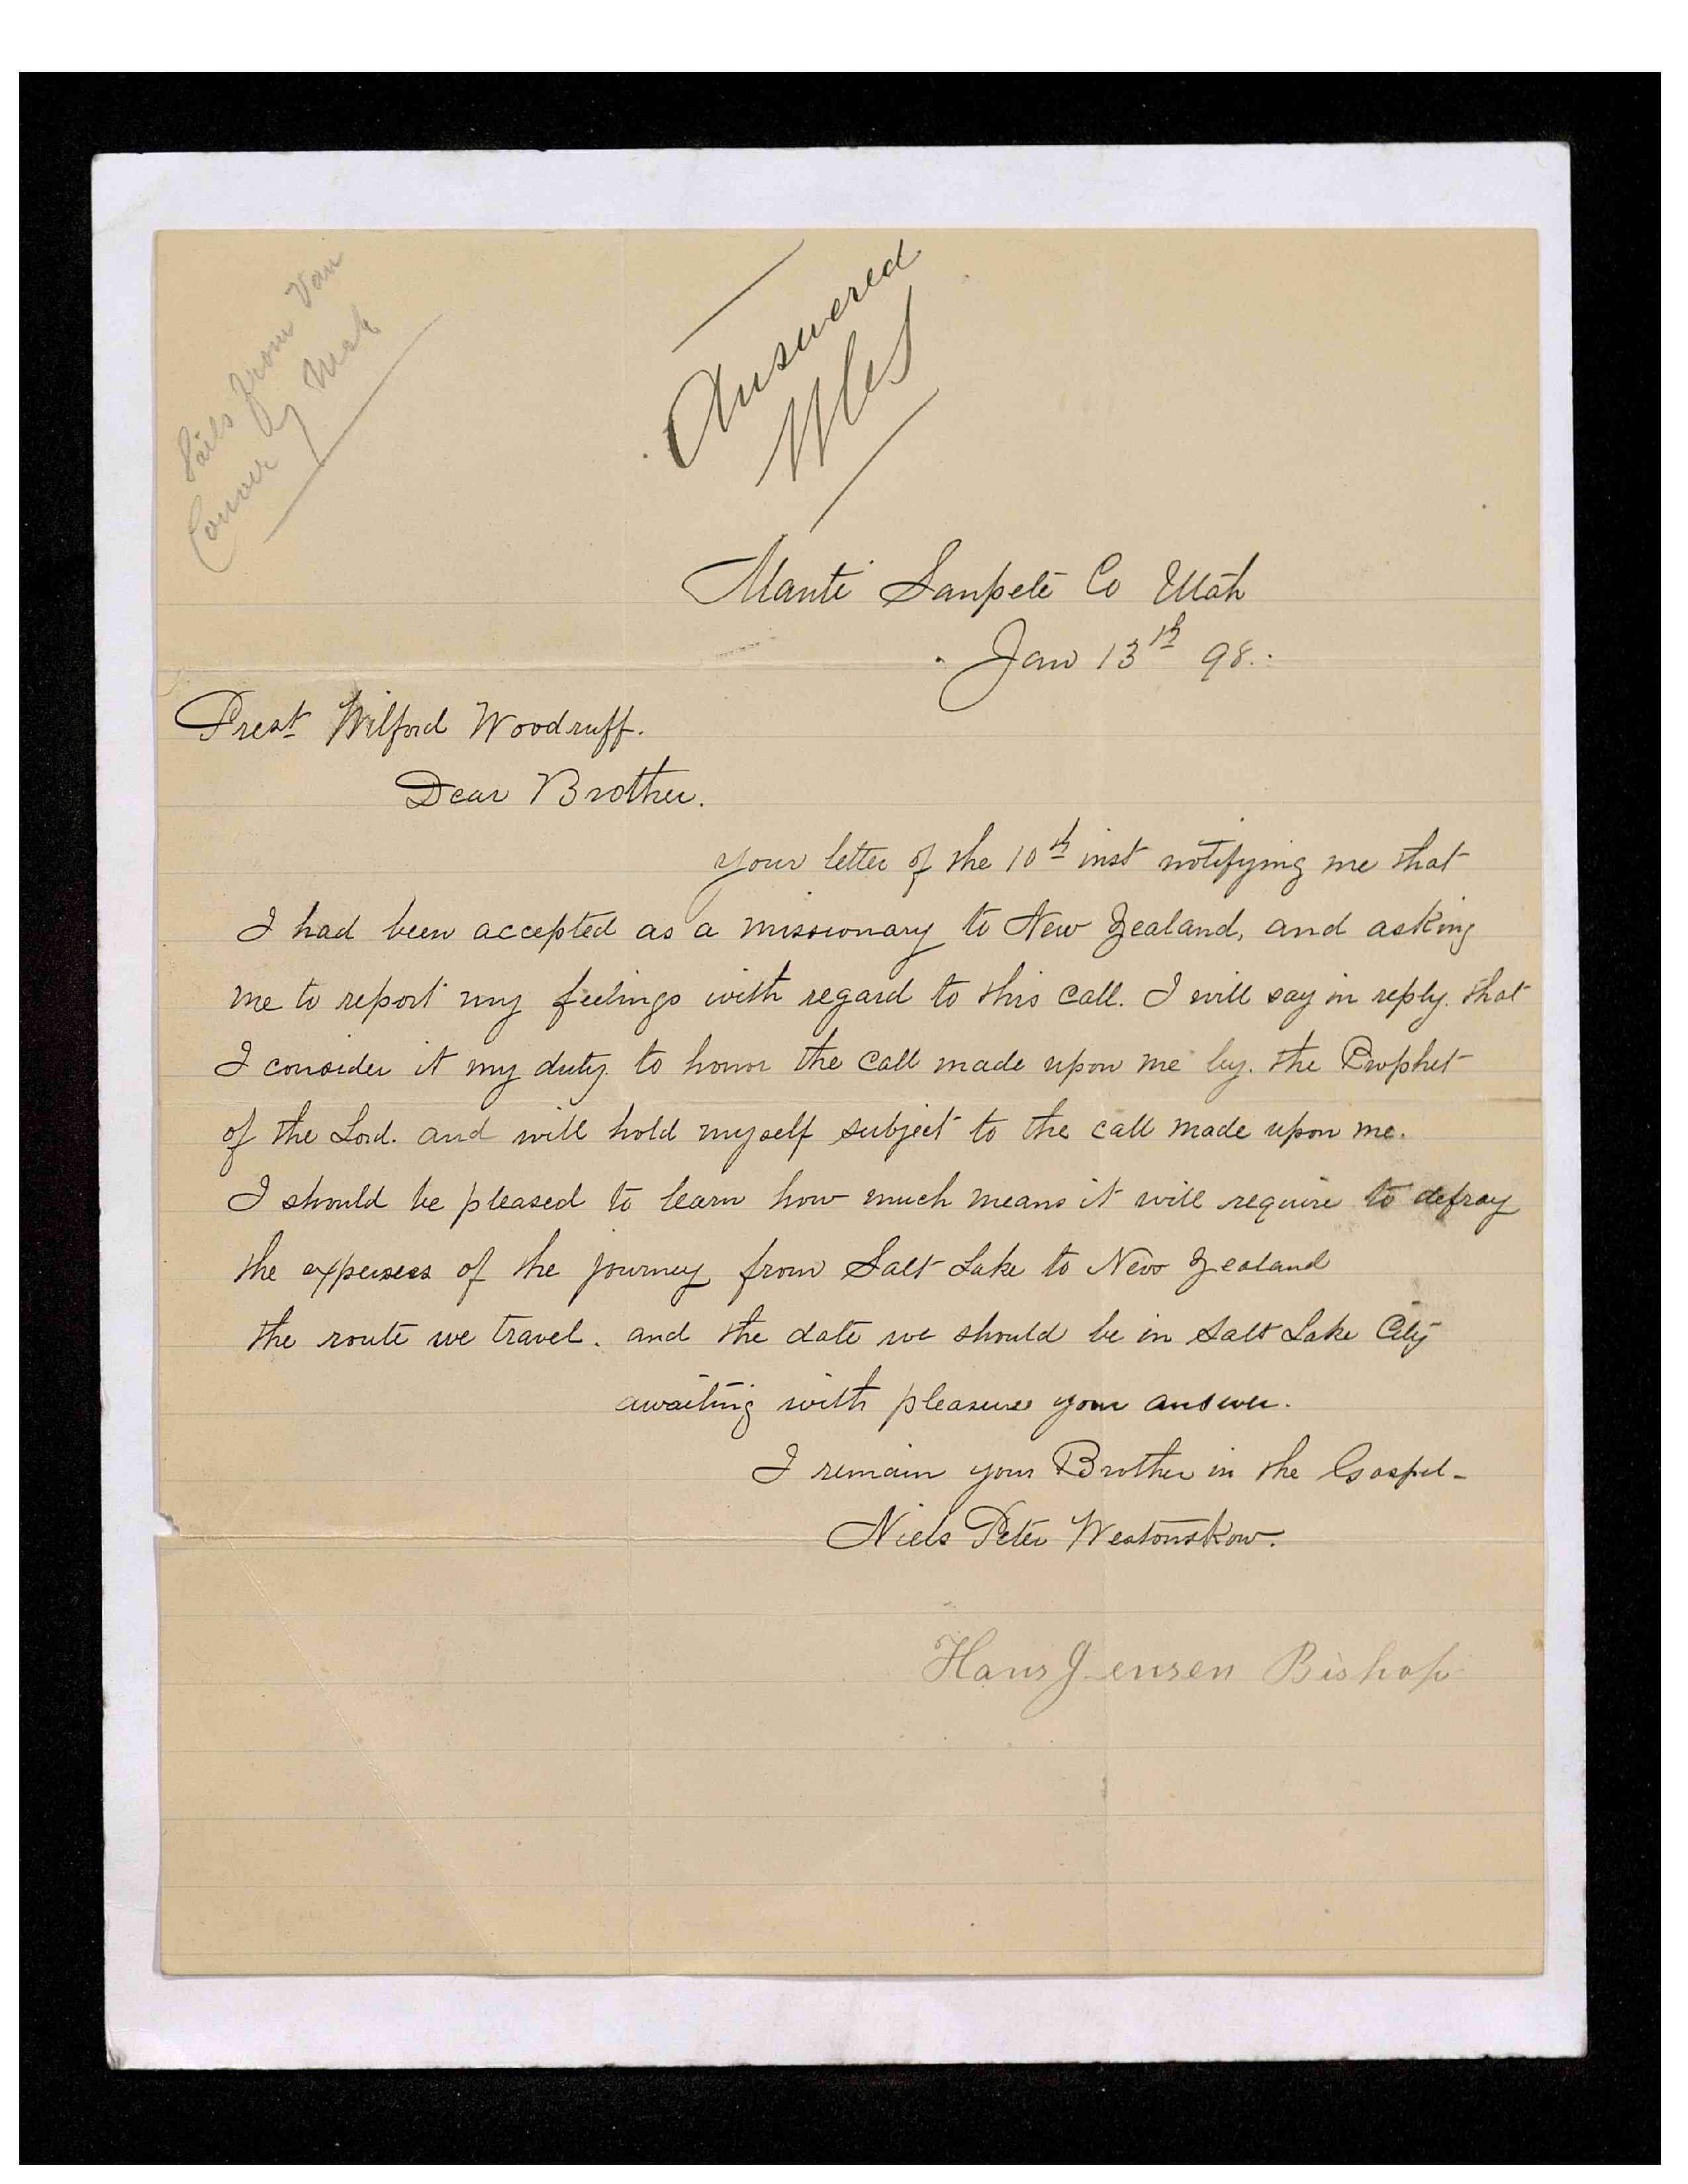 Sails from Van
Couver
Answered
Manti Sanpete Co Utah
Jan 13th 98.
Prest Wilford Woodruff.
Dear Brother.
your letter of the 10th inst notifying me that
I had been accepted as a missionary to New Zealand, and asking
me to report my feelings with regard to this call. I will say in reply. that
I consider it my duty. to honor the call made upon me by. the Prophet
of the Lord. and will hold myself subject to the call made upon me.
I should be pleased to learn how much means it will require to defray
the expenses of the journey from Salt Lake to New Zealand
the route we travel. and the date we should be in Salt Lake City
awaiting with pleasure your answer.
I remain your Brother in the Gospel-
Niels Peter Westonskow.
Hans Jensen Bishop